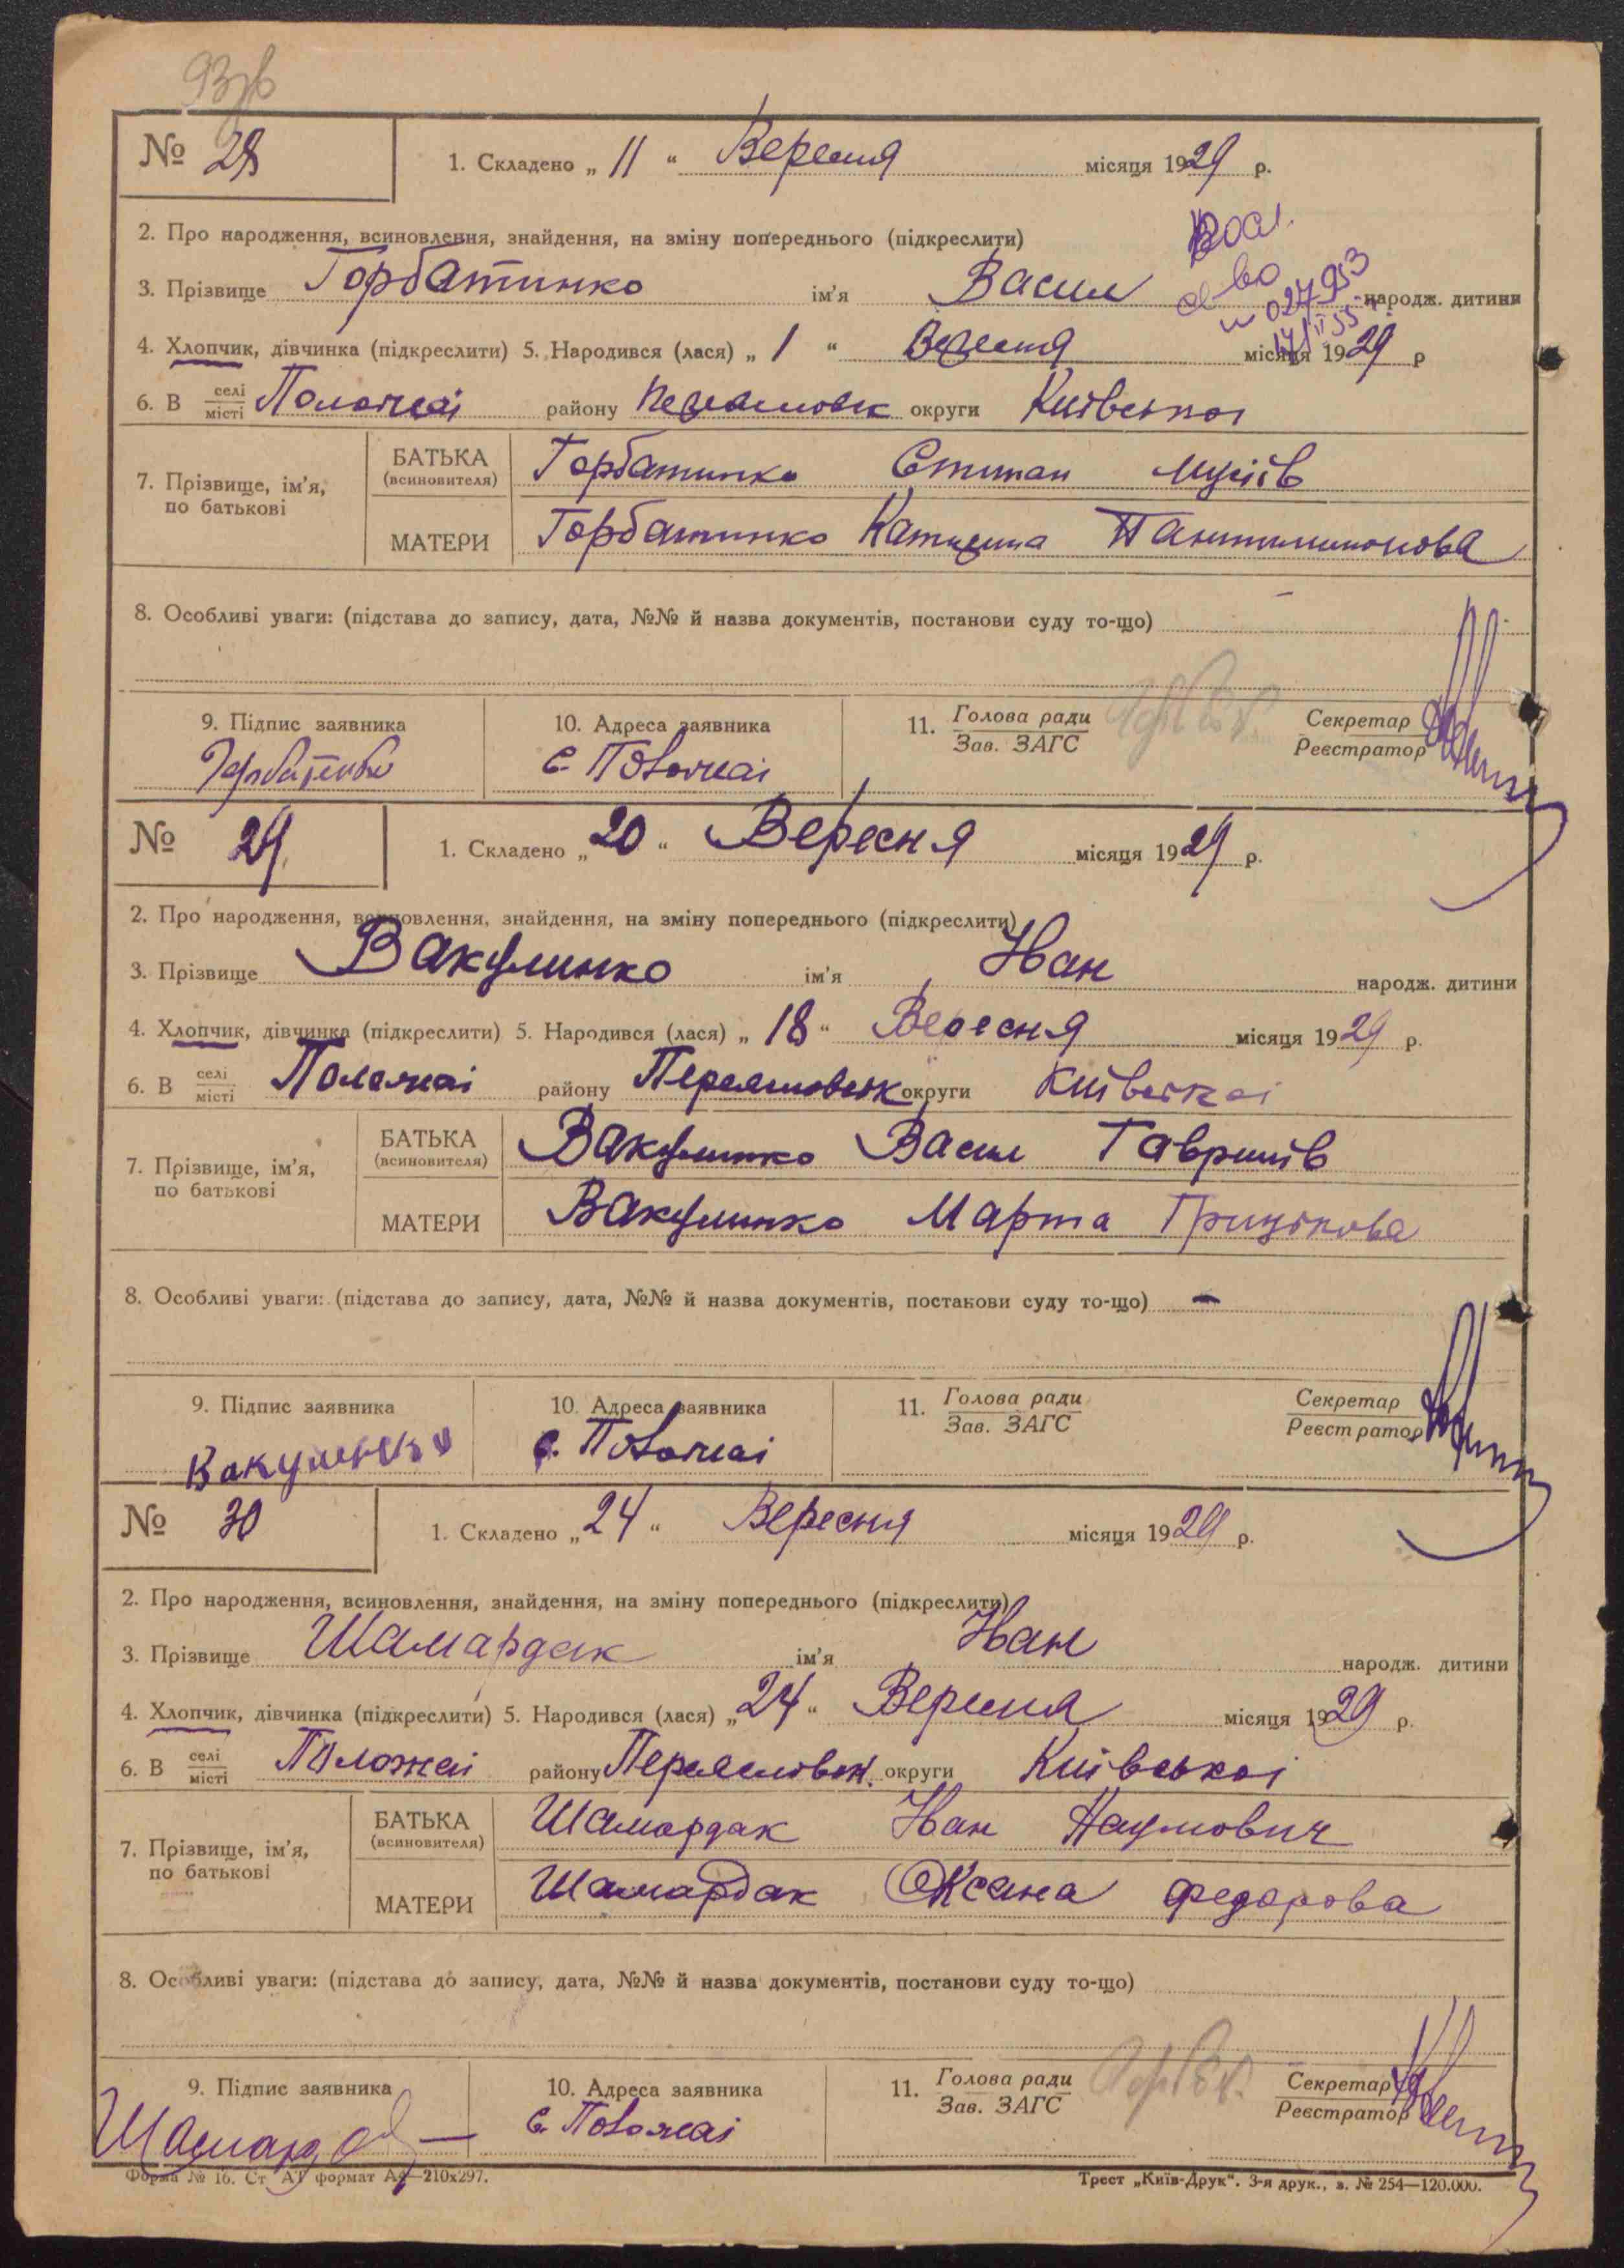 № 28 1. Складено „ 11 “ Вересня місяця 1929 р.
2. Про народження, всиновлення, знайдення, на зміну попереднього (підкреслити)
3. Прізвище Горбатинко ім'я Васил народж. дитини
4. Хлопчик, дівчинка (підкреслити) 5. Народився (лася) „ 1 “ Вересня місяця 1929 р
6. В селі/місті Положаі району округи Київськоі
7. Прізвище, ім'я, по батькові
БАТЬКА (всиновителя) Горбатинко Стипан Мусіїв
МАТЕРИ Горбатинко Катирина Пантилимонова
8. Особливі уваги: (підстава до запису, дата, №№ й назва документів, постанови суду то-що)
9. Підпис заявника 10. Адреса заявника 11. Голова ради/Зав. ЗАГС Секретар/Реєстратор
с. Положаі
№ 29 1. Складено „ 20 “ Вересня місяця 1929 р.
2. Про народження, всиновлення, знайдення, на зміну попереднього (підкреслити)
3. Прізвище Вакулинко ім'я Іван народж. дитини
4. Хлопчик, дівчинка (підкреслити) 5. Народився (лася) „ 18 “ Вересня місяця 1929 р.
6. В селі/місті Положаі району Переясловськ округи Київськоі
7. Прізвище, ім'я, по батькові
БАТЬКА (всиновителя) Вакулинко Васил Гаврилів
МАТЕРИ Вакулинко Марта Грицькова
8. Особливі уваги: (підстава до запису, дата, №№ й назва документів, постанови суду то-що) -
9. Підпис заявника 10. Адреса заявника 11. Голова ради/Зав. ЗАГС Секретар/Реєстратор
Вакуленко с. Положаі
№ 30 1. Складено „ 24 “ Вересня місяця 1929 р.
2. Про народження, всиновлення, знайдення, на зміну попереднього (підкреслити)
3. Прізвище Шамардак ім'я Іван народж. дитини
4. Хлопчик, дівчинка (підкреслити) 5. Народився (лася) „ 24 “ Вересня місяця 1929 р.
6. В селі/місті Положаі району Переясловськ. округи Київськоі
7. Прізвище, ім'я, по батькові
БАТЬКА (всиновителя) Шамардак Іван Наумович
МАТЕРИ Шамардак Оксана Федорова
8. Особливі уваги: (підстава до запису, дата, №№ й назва документів, постанови суду то-що)
9. Підпис заявника 10. Адреса заявника 11. Голова ради/Зав. ЗАГС Секретар/Реєстратор
с. Положаі
Форма № 16. Ст. АТ формат А4—210x297. Трест „Київ-Друк“. 3-я друк., з. № 254—120.000.